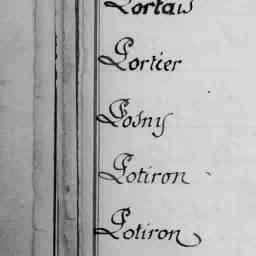 Portais
Portier
Posny
Potiron
Potiron